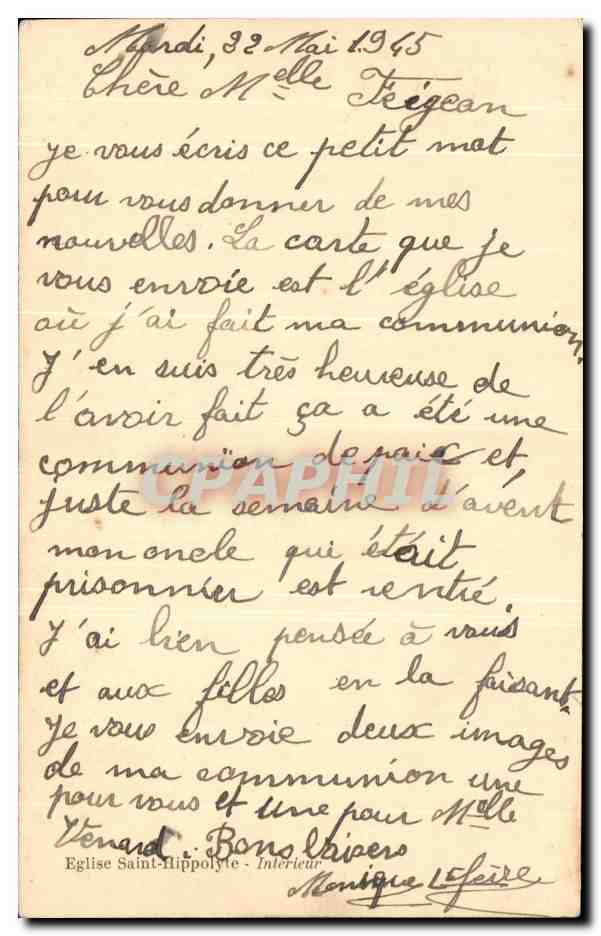 Mardi, 22 Mai 1945
Chère Melle Feégean
je vous écris ce petit mot
pour vous donner de mes
nouvelles. La carte que je
vous envoie est l'église
où j'ai fait ma communion.
J'en suis très heureuse de
l'avoir fait ça a été une
communion de paix et,
CPAPHIL
juste la semaine d'avent
mon oncle qui était
prisonnier est rentré.
J'ai bien pensée à vous
et aux filles en la faisant.
Je vous envoie deux images
de ma communion une
pour vous et une pour Melle
Venard. Bons baisers
Eglise Saint-Hippolyte - Intérieur
Monique